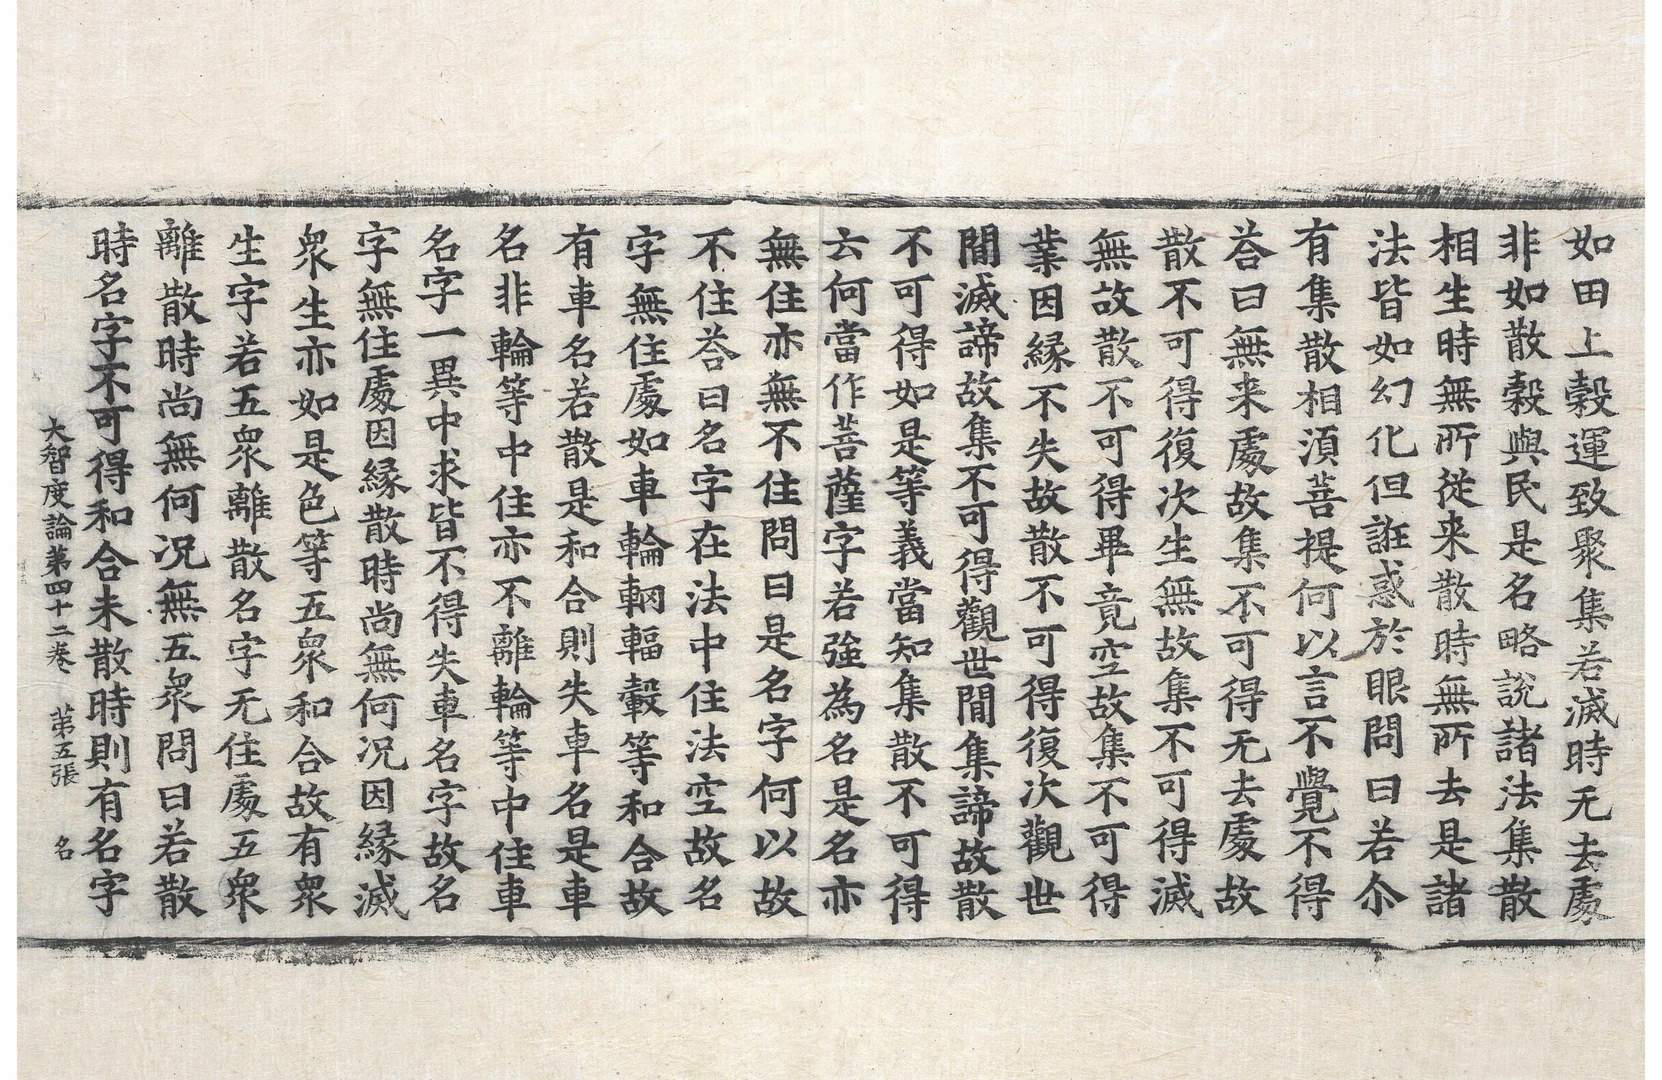 如田上穀運致聚集若滅時无去處
非如散穀與民是名略說諸法集散
相生時無所從来散時無所去是諸
法皆如幻化但誑惑於眼問曰若尒
有集散相湏菩提何以言不覺不得
荅曰無来處故集不可得无去處故
散不可得復次生無故集不可得滅
無故散不可得畢竟空故集不可得
業因縁不失故散不可得復次觀世
間滅諦故集不可得觀世間集諦故散
不可得如是等義當知集散不可得
云何當作菩薩字若強為名是名亦
無住亦無不住問曰是名字何以故
不住荅曰名字在法中住法空故名
字無住處如車輪輞輻轂等和合故
有車名若散是和合則失車名是車
名非輪等中住亦不離輪等中住車
名字一異中求皆不得失車名字故名
字無住處因縁散時尚無何况因縁滅
衆生亦如是色等五衆和合故有衆
生字若五衆離散名字无住處五衆
離散時尚無何况無五衆問曰若散
時名字不可得和合未散時則有名字
大智度論第四十二卷 第五張 名